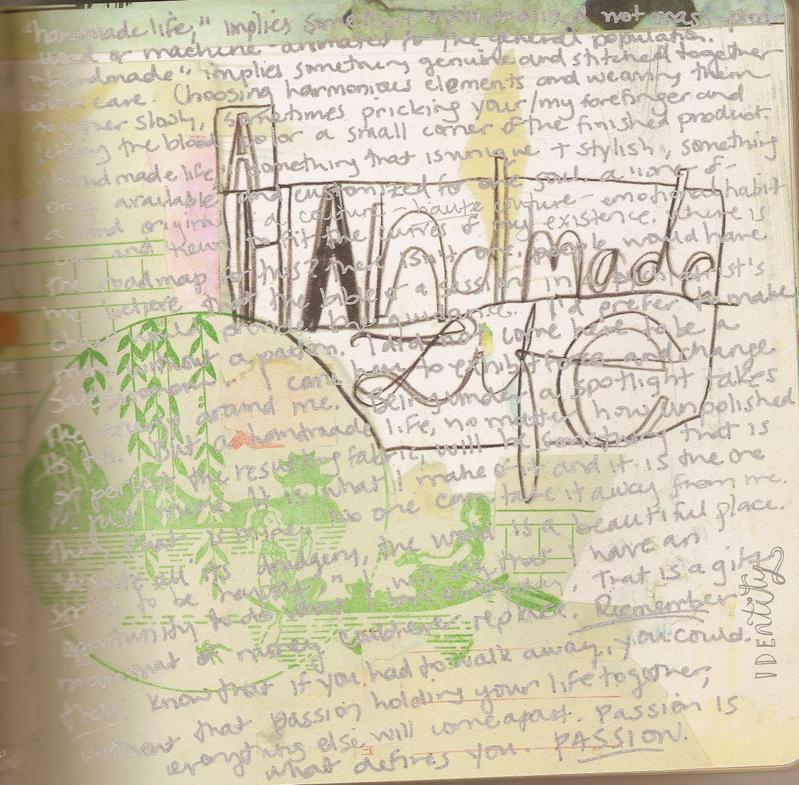 "handmade life," implies something not mass prod
uced or machine-animated to the general population.
"handmade" implies something genuine and stitched together
with care. Choosing harmonious elements and weaving them
together slash, sometimes pricking your/my forefinger and
letting the blood on a small corner of the finished product.
a handmade life something that is unique + stylish, something
only available and customized for one soul. a one-of-
a-kind original. a couture - haute couture - emotional habit
cut and sewn to fit the curves of my existence. Where is
the roadmap for this? There isn't one. people would have
me believe that the bible or a session in a
could provide me guidance. I'd prefer to make
without a pattern. I did not come here to be a
I came here to exhibit and change
the energy around me. Being under a spotlight takes
its But a handmade life, no matter how unpolished
or perfect the resulting fabric, will be something that is
just mine. It is what I make of it and it is the one
thing that is mine. no one can take it away from me.
despite all its drudgery, the world is a beautiful place.
to be happy." I that I have an
opportunity to do what I love every day. That is a gift
that of money could replace. Remember
that. know that if you had to walk away, you could.
without that passion holding your life together,
everything else will come apart. passion is
what defines you. PASSION.
A
HAndmade
Life
IDEntity